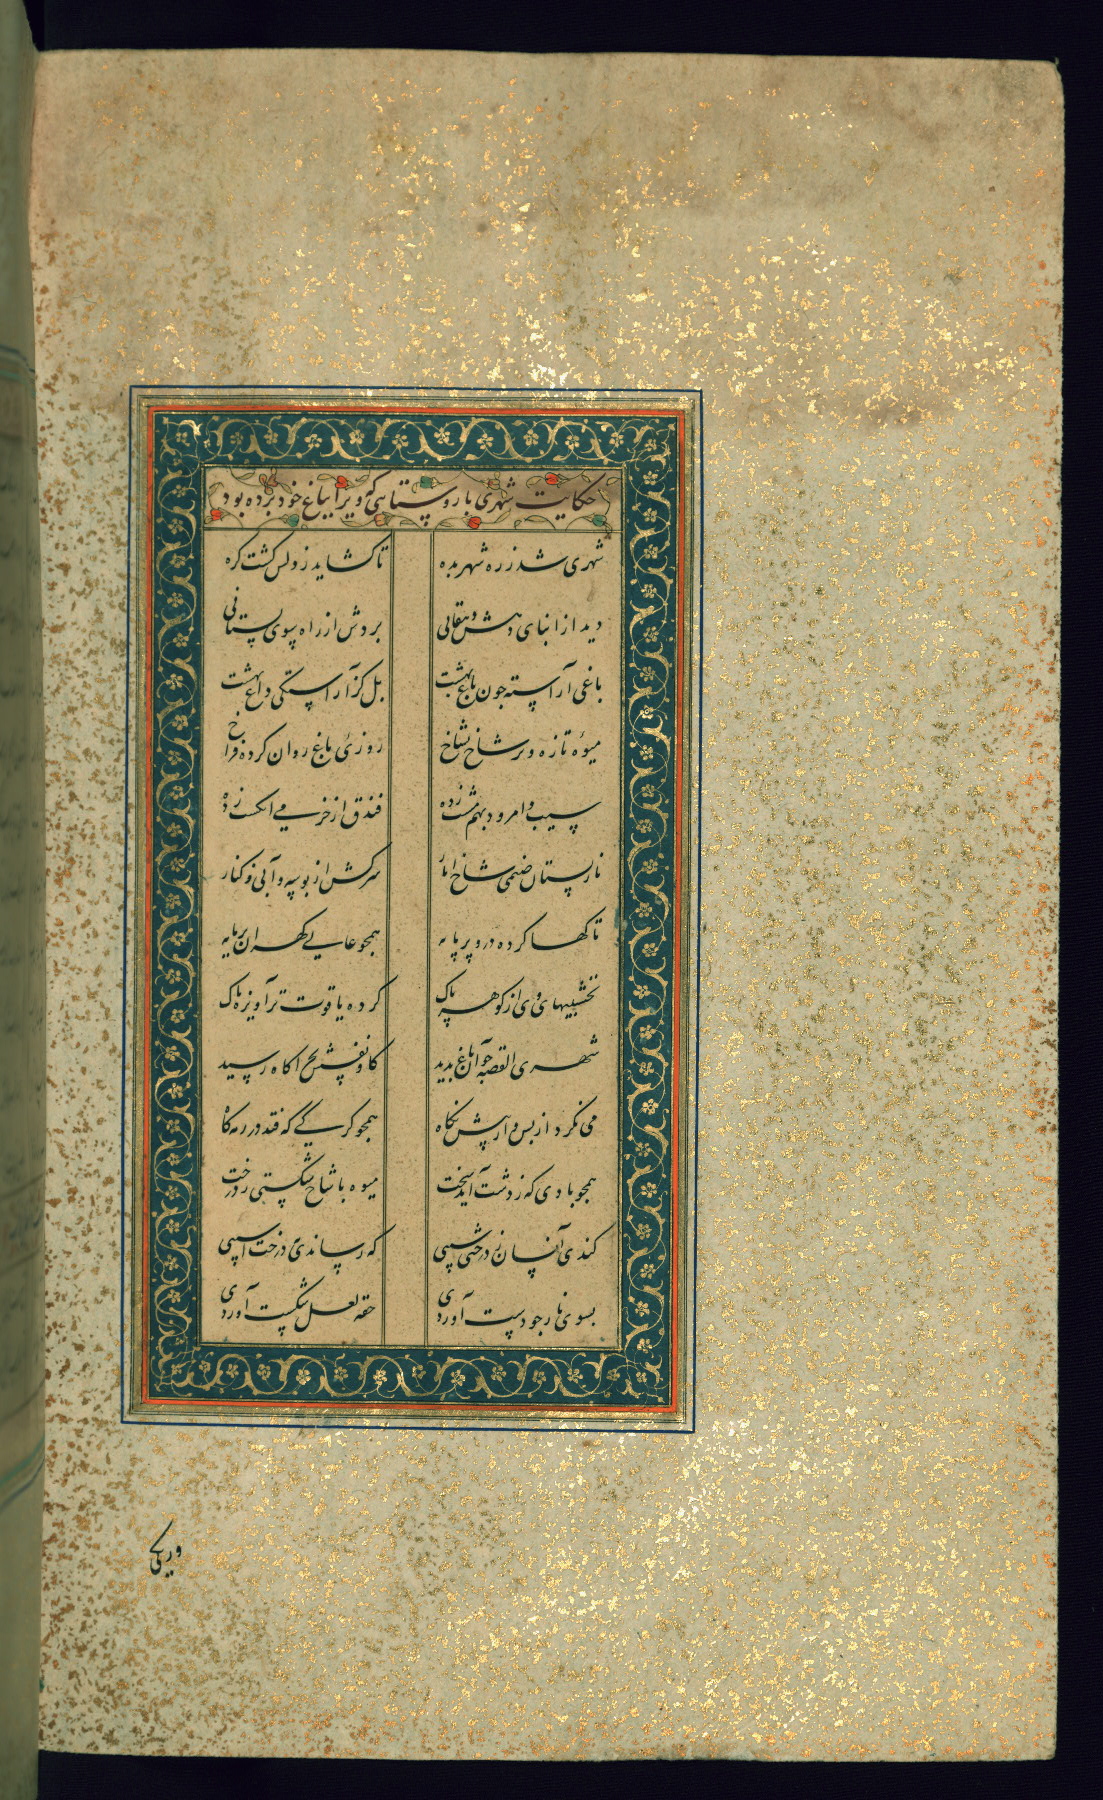 حکایت شهری با روستایی که ویرا بباغ خود برده بود
شهری شد ز ره شهر بده تا کشاید ز دلش کشت کره
دید از ابنای دهش دهقانی بردش از راه بسوی بستانی
باغی آراسته چون باغ بهشت بل کز آراستکی داغ بهشت
میوهٔ تازه و تر شاخ بشاخ روزیٔ باغ روان کرده فراخ
سیب و امرود بهم مشت زده فندق از خرمی انکشت زده
نار پستان صنمی شاخ انار سرکش از بوسه و آبی ز کنار
تاکها کرده درو پر پایه همچو عالی کهران پر مایه
بخشیهای وی از کوهر پاک کرده یاقوت تر آویزه تاک
شهری القصه چو آن باغ بدید کاو نفسش بچراکاه رسید
می نکرد از پس و از پیش نکاه همچو کرکی که فتد در رمه کاه
همچو بادی که ز دشت آید سخت میوه با شاخ شکستی ز درخت
کندی آنسان ز درختی سیبی که رساندی بدرخت آسیبی
بسوی نار چو دست آوردی حقه لعل شکست آوردی
ور یکی